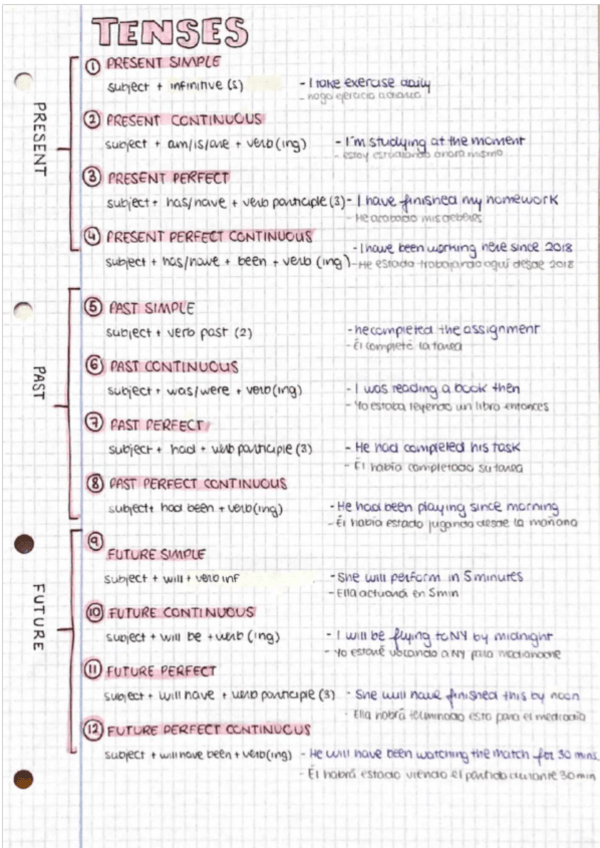 TENSES
PRESENT
① PRESENT SIMPLE
subject + infinitive (s) - I take exercise daily
- hago ejercicio a diario
② PRESENT CONTINUOUS
subject + am/is/are + verb(ing) - I'm studying at the moment
- estoy estudiando ahora mismo
③ PRESENT PERFECT
subject + has/have + verb participle (3) - I have finished my homework
- He acabado mis deberes
④ PRESENT PERFECT CONTINUOUS
- I have been working here since 2018
subject + has/have + been + verb (ing) - He estado trabajando aquí desde 2018
PAST
⑤ PAST SIMPLE
subject + verb past (2) - he completed the assignment
- Él completó la tarea
⑥ PAST CONTINUOUS
subject + was/were + verb(ing) - I was reading a book then
- Yo estaba leyendo un libro entonces
⑦ PAST PERFECT
subject + had + verb participle (3) - He had completed his task
- Él había completado su tarea
⑧ PAST PERFECT CONTINUOUS
subject + had been + verb(ing) - He had been playing since morning
- Él había estado jugando desde la mañana
FUTURE
⑨
FUTURE SIMPLE
subject + will + verb inf - She will perform in 5 minutes
- Ella actuará en 5 min
⑩ FUTURE CONTINUOUS
subject + will be + verb (ing) - I will be flying to NY by midnight
- Yo estaré volando a NY para medianoche
⑪ FUTURE PERFECT
subject + will have + verb participle (3) - She will have finished this by noon
- Ella habrá terminado esto para el mediodía
⑫ FUTURE PERFECT CONTINUOUS
subject + will have been + verb(ing) - He will have been watching the match for 30 mins.
- Él habrá estado viendo el partido durante 30 min